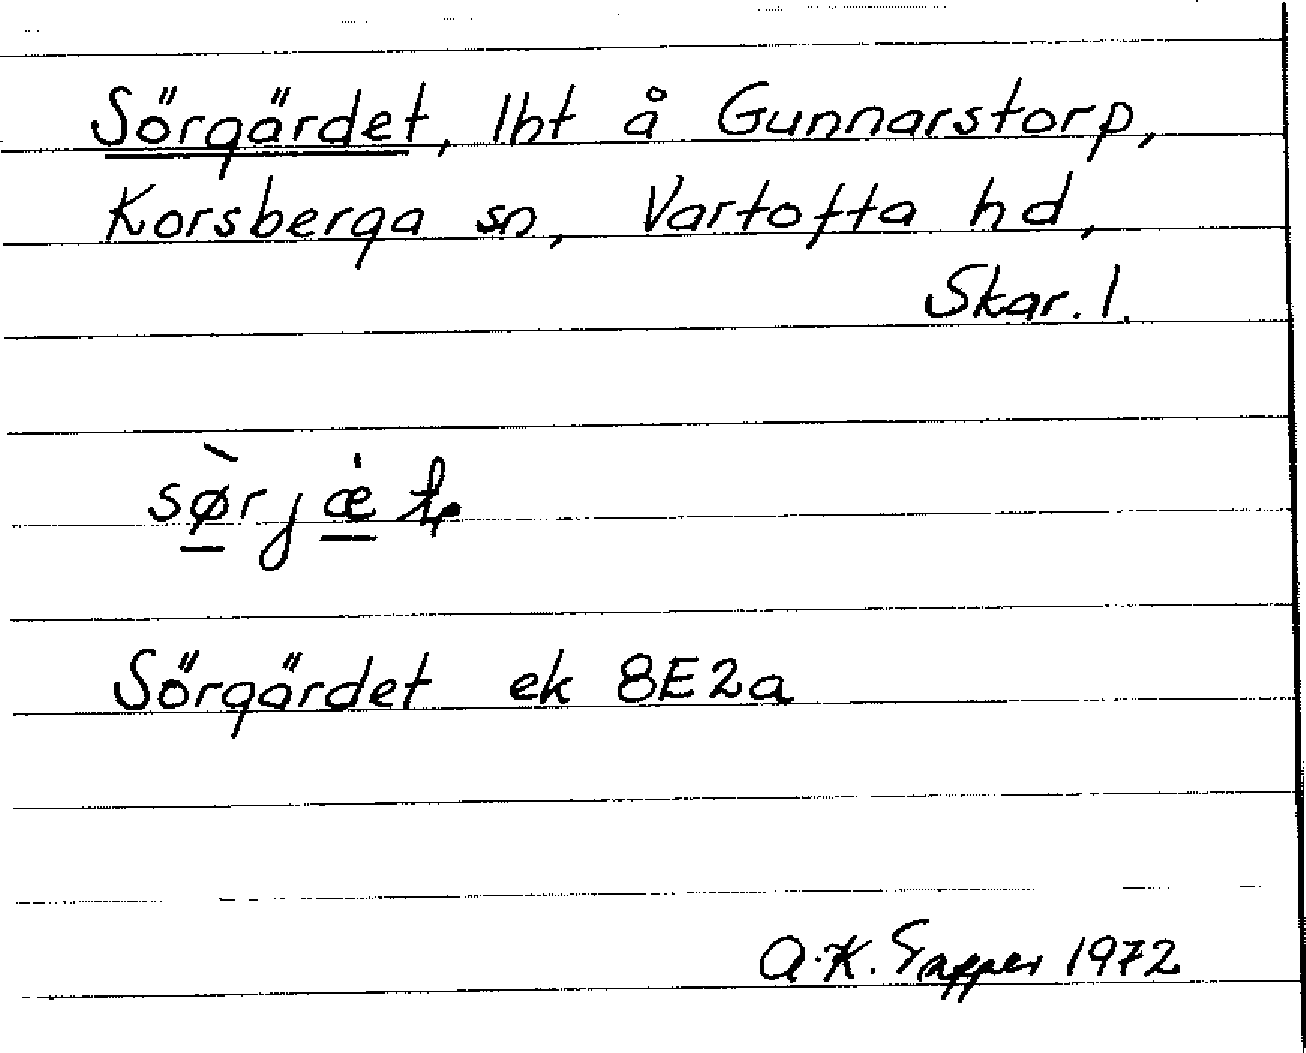 Sörgärdet, lht å Gunnarstorp,
Korsberga sn, Vartofta hd,
Skar. l.
Sörgärdet ek 8E2a
A.K. 1972